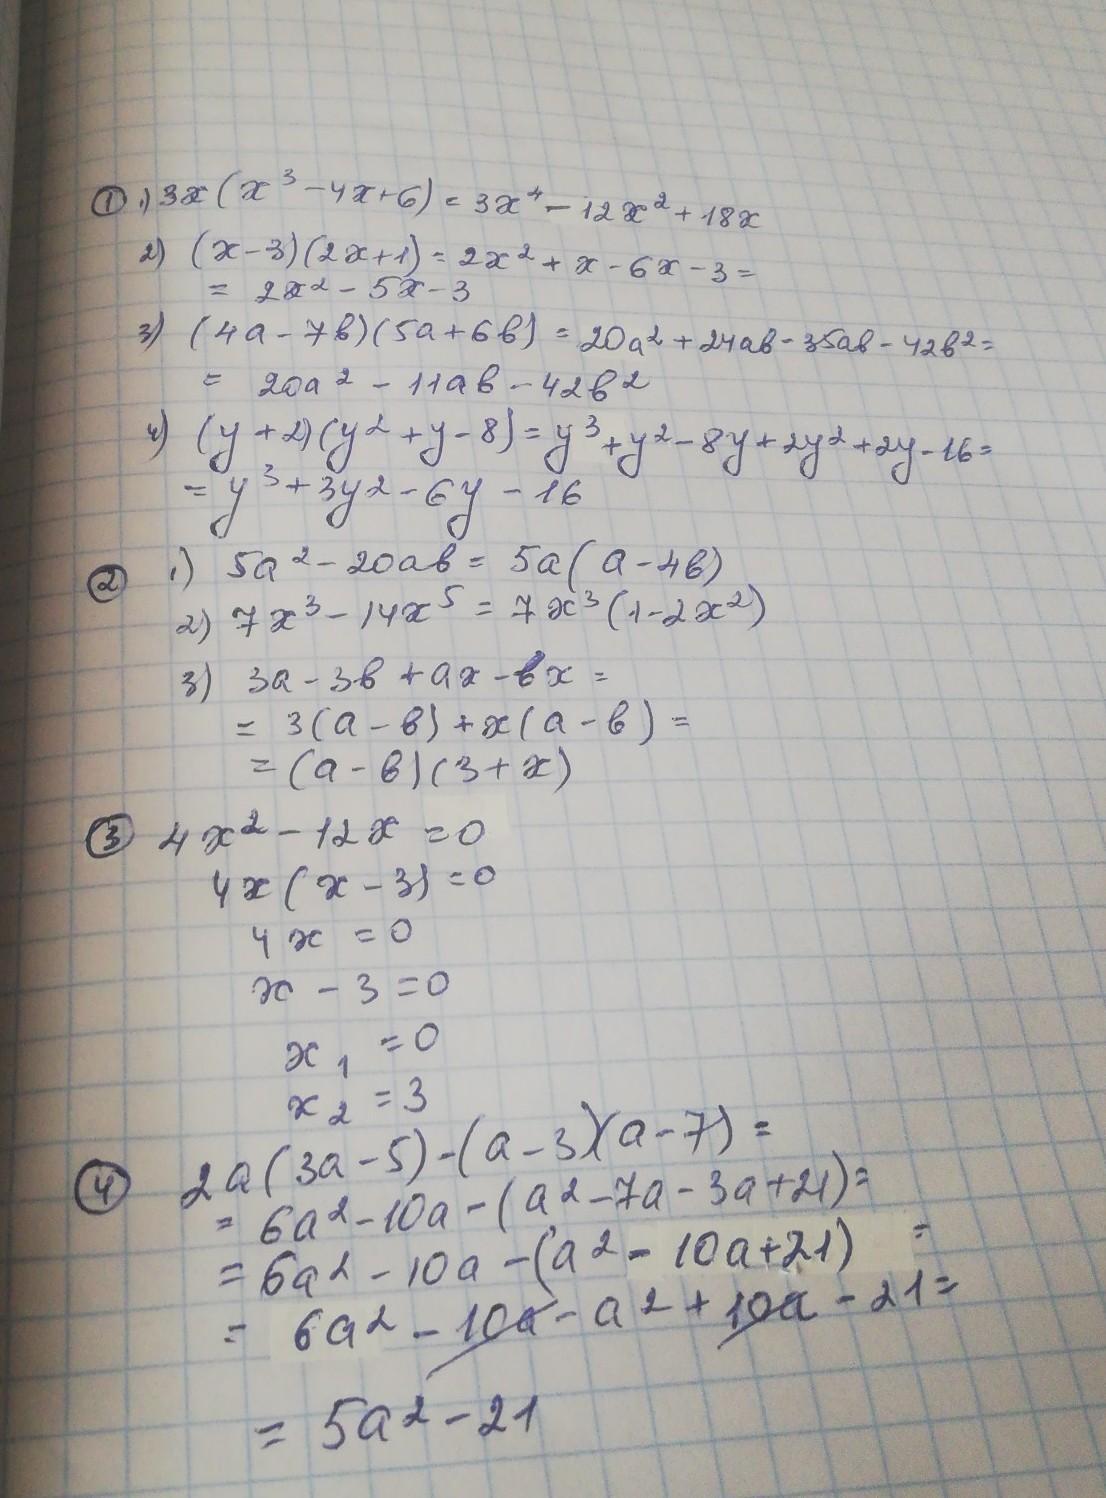 ① 1) 3x(x³-4x+6) = 3x⁴ - 12x² + 18x
2) (x-3)(2x+1) = 2x² + x - 6x - 3 =
= 2x² - 5x - 3
3) (4a-7b)(5a+6b) = 20a² + 24ab - 35ab - 42b² =
= 20a² - 11ab - 42b²
4) (y+2)(y²+y-8) = y³ + y² - 8y + 2y² + 2y - 16 =
= y³ + 3y² - 6y - 16
② 1) 5a² - 20ab = 5a(a-4b)
2) 7x³ - 14x⁵ = 7x³(1-2x²)
3) 3a - 3b + ax - bx =
= 3(a-b) + x(a-b) =
= (a-b)(3+x)
③ 4x² - 12x = 0
4x(x-3) = 0
4x = 0
x - 3 = 0
x₁ = 0
x₂ = 3
④ 2a(3a-5) - (a-3)(a-7) =
= 6a² - 10a - (a² - 7a - 3a + 21) =
= 6a² - 10a - (a² - 10a + 21) =
= 6a² - 10a - a² + 10a - 21 =
= 5a² - 21